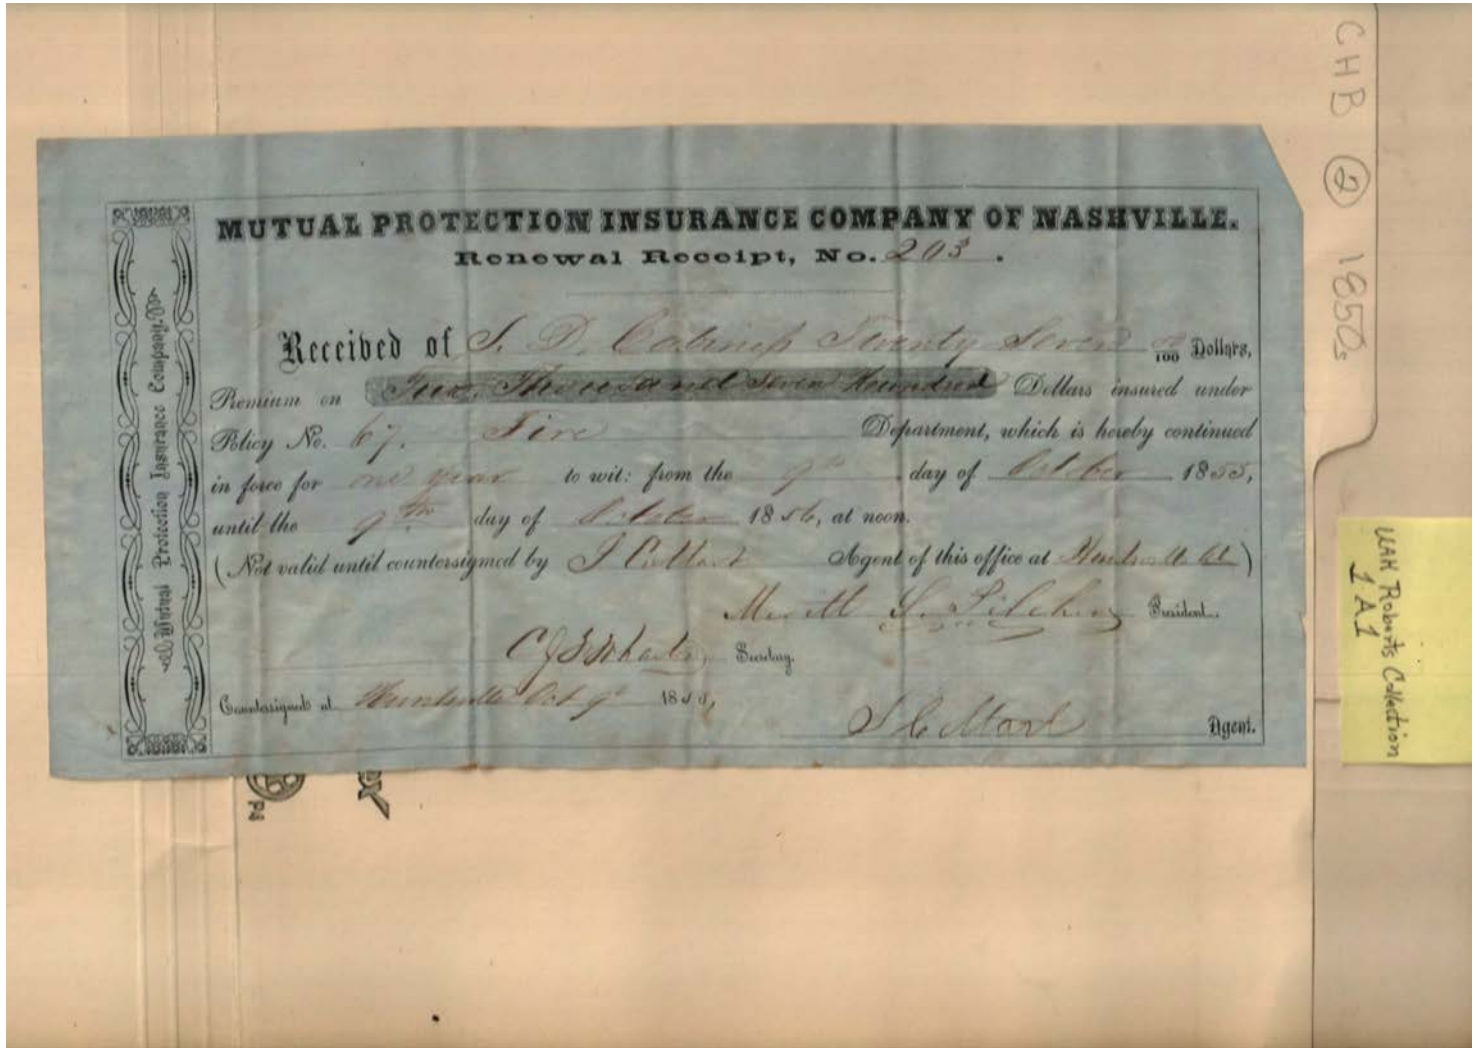 MUTUAL PROTECTION INSURANCE COMPANY OF NASHVILLE.
Renewal Receipt, No. 203.
Received of S. D. Cabiness Twenty Seven 100 Dollars,
Premium on Two Thousand Seven Hundred Dollars insured under
Policy No. 67. Fire Department, which is hereby continued
in force for one year to wit: from the 9th day of October 1855,
until the 9th day of October 1856, at noon.
(Not valid until countersigned by Agent of this office at Huntsville Al)
S. Pilcher President.
Secretary.
Countersigned at Huntsville Oct 9th 1855,
Agent.
Mutual Protection Insurance Company.
CHB 2 1850s
UAH Roberts Collection
1A1